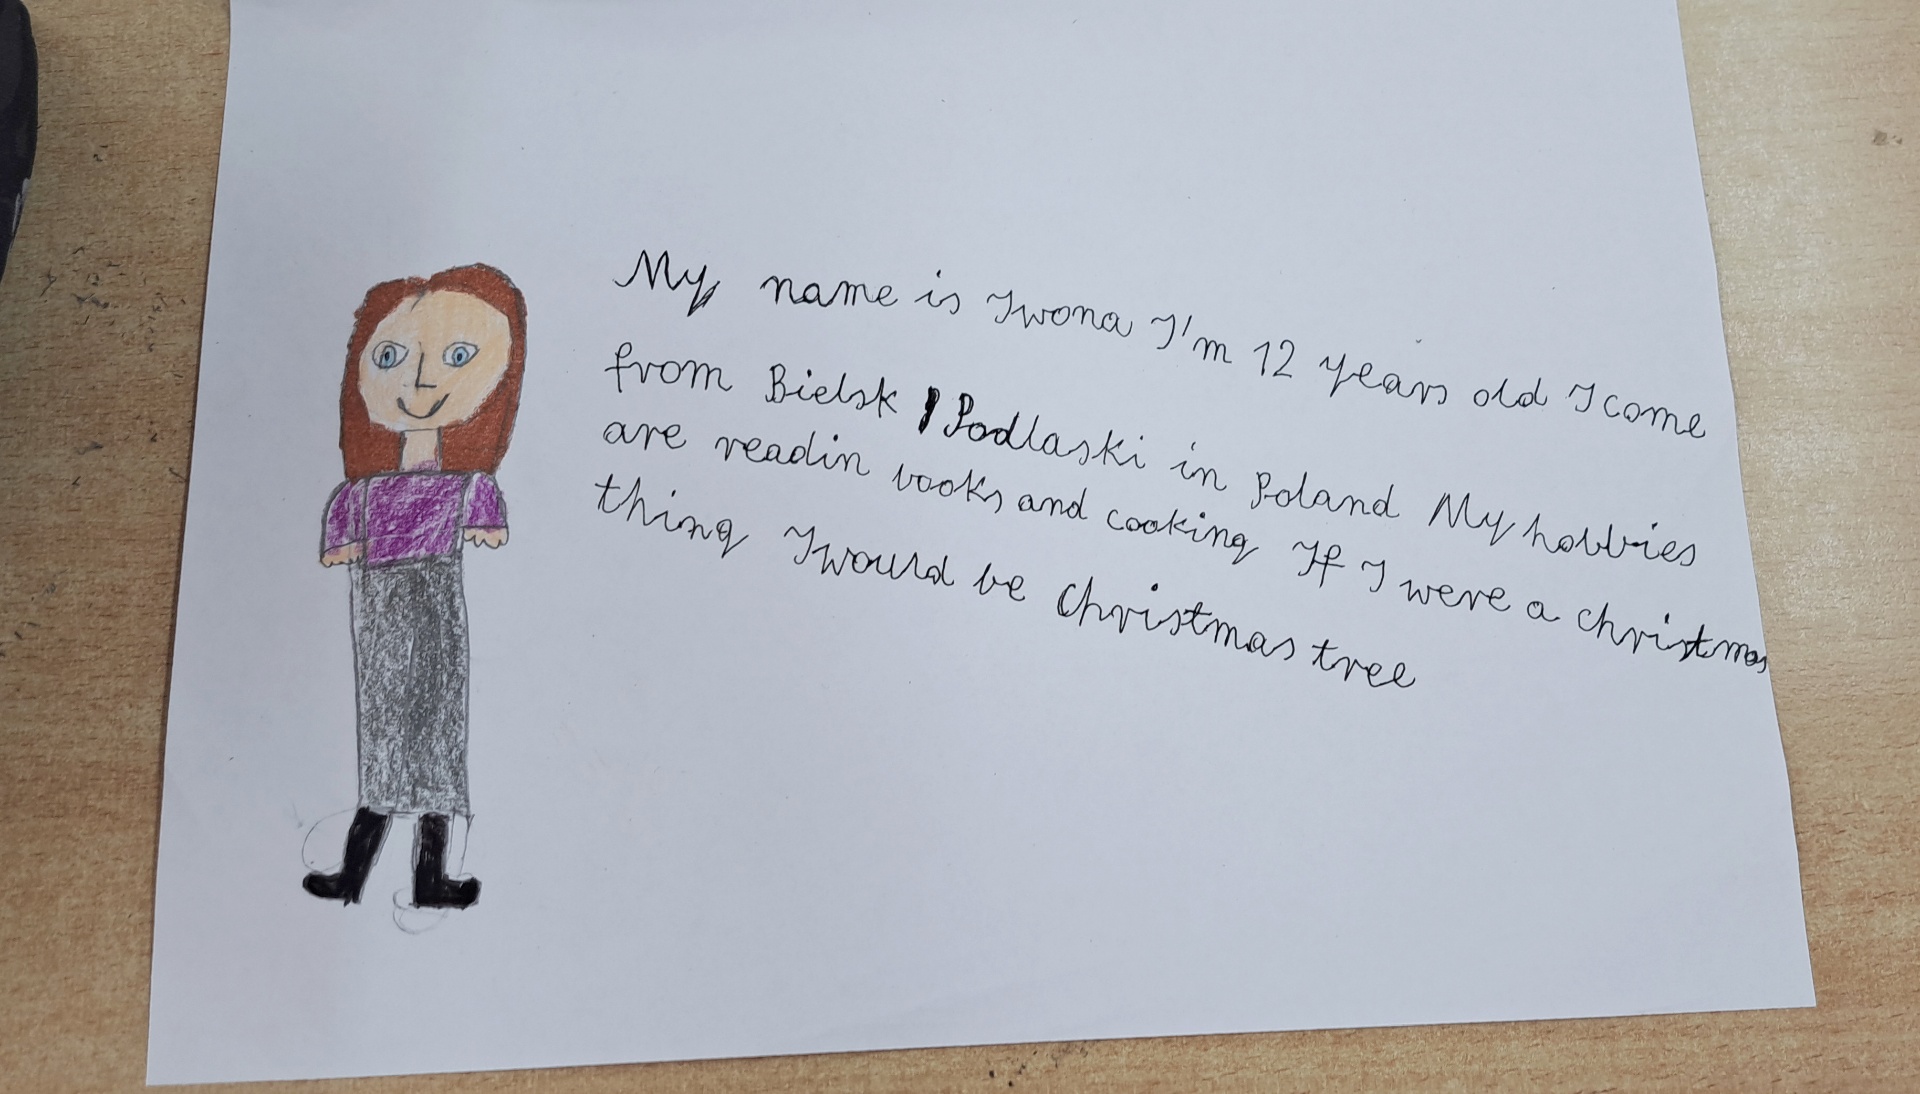 My name is Iwona I'm 12 years old I come
from Bielsk Podlaski in Poland My hobbies
are readin books and cooking If I were a christmas
thing I would be Christmas tree